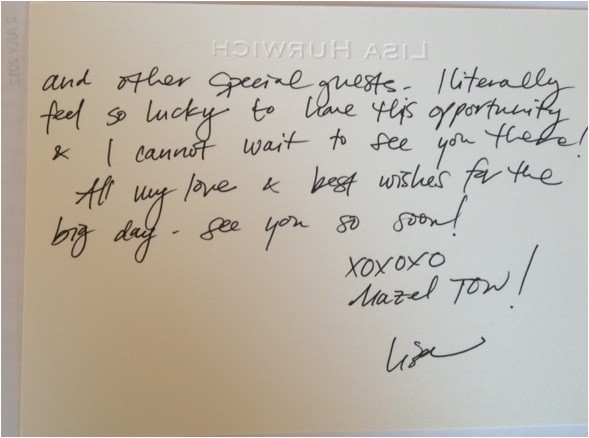 LISA HURWICH
and other special guests. I literally
feel so lucky to have this opportunity
& I cannot wait to see you there!
All my love & best wishes for the
big day - see you so soon!
XOXOXO
Mazel TOV!
Lisa